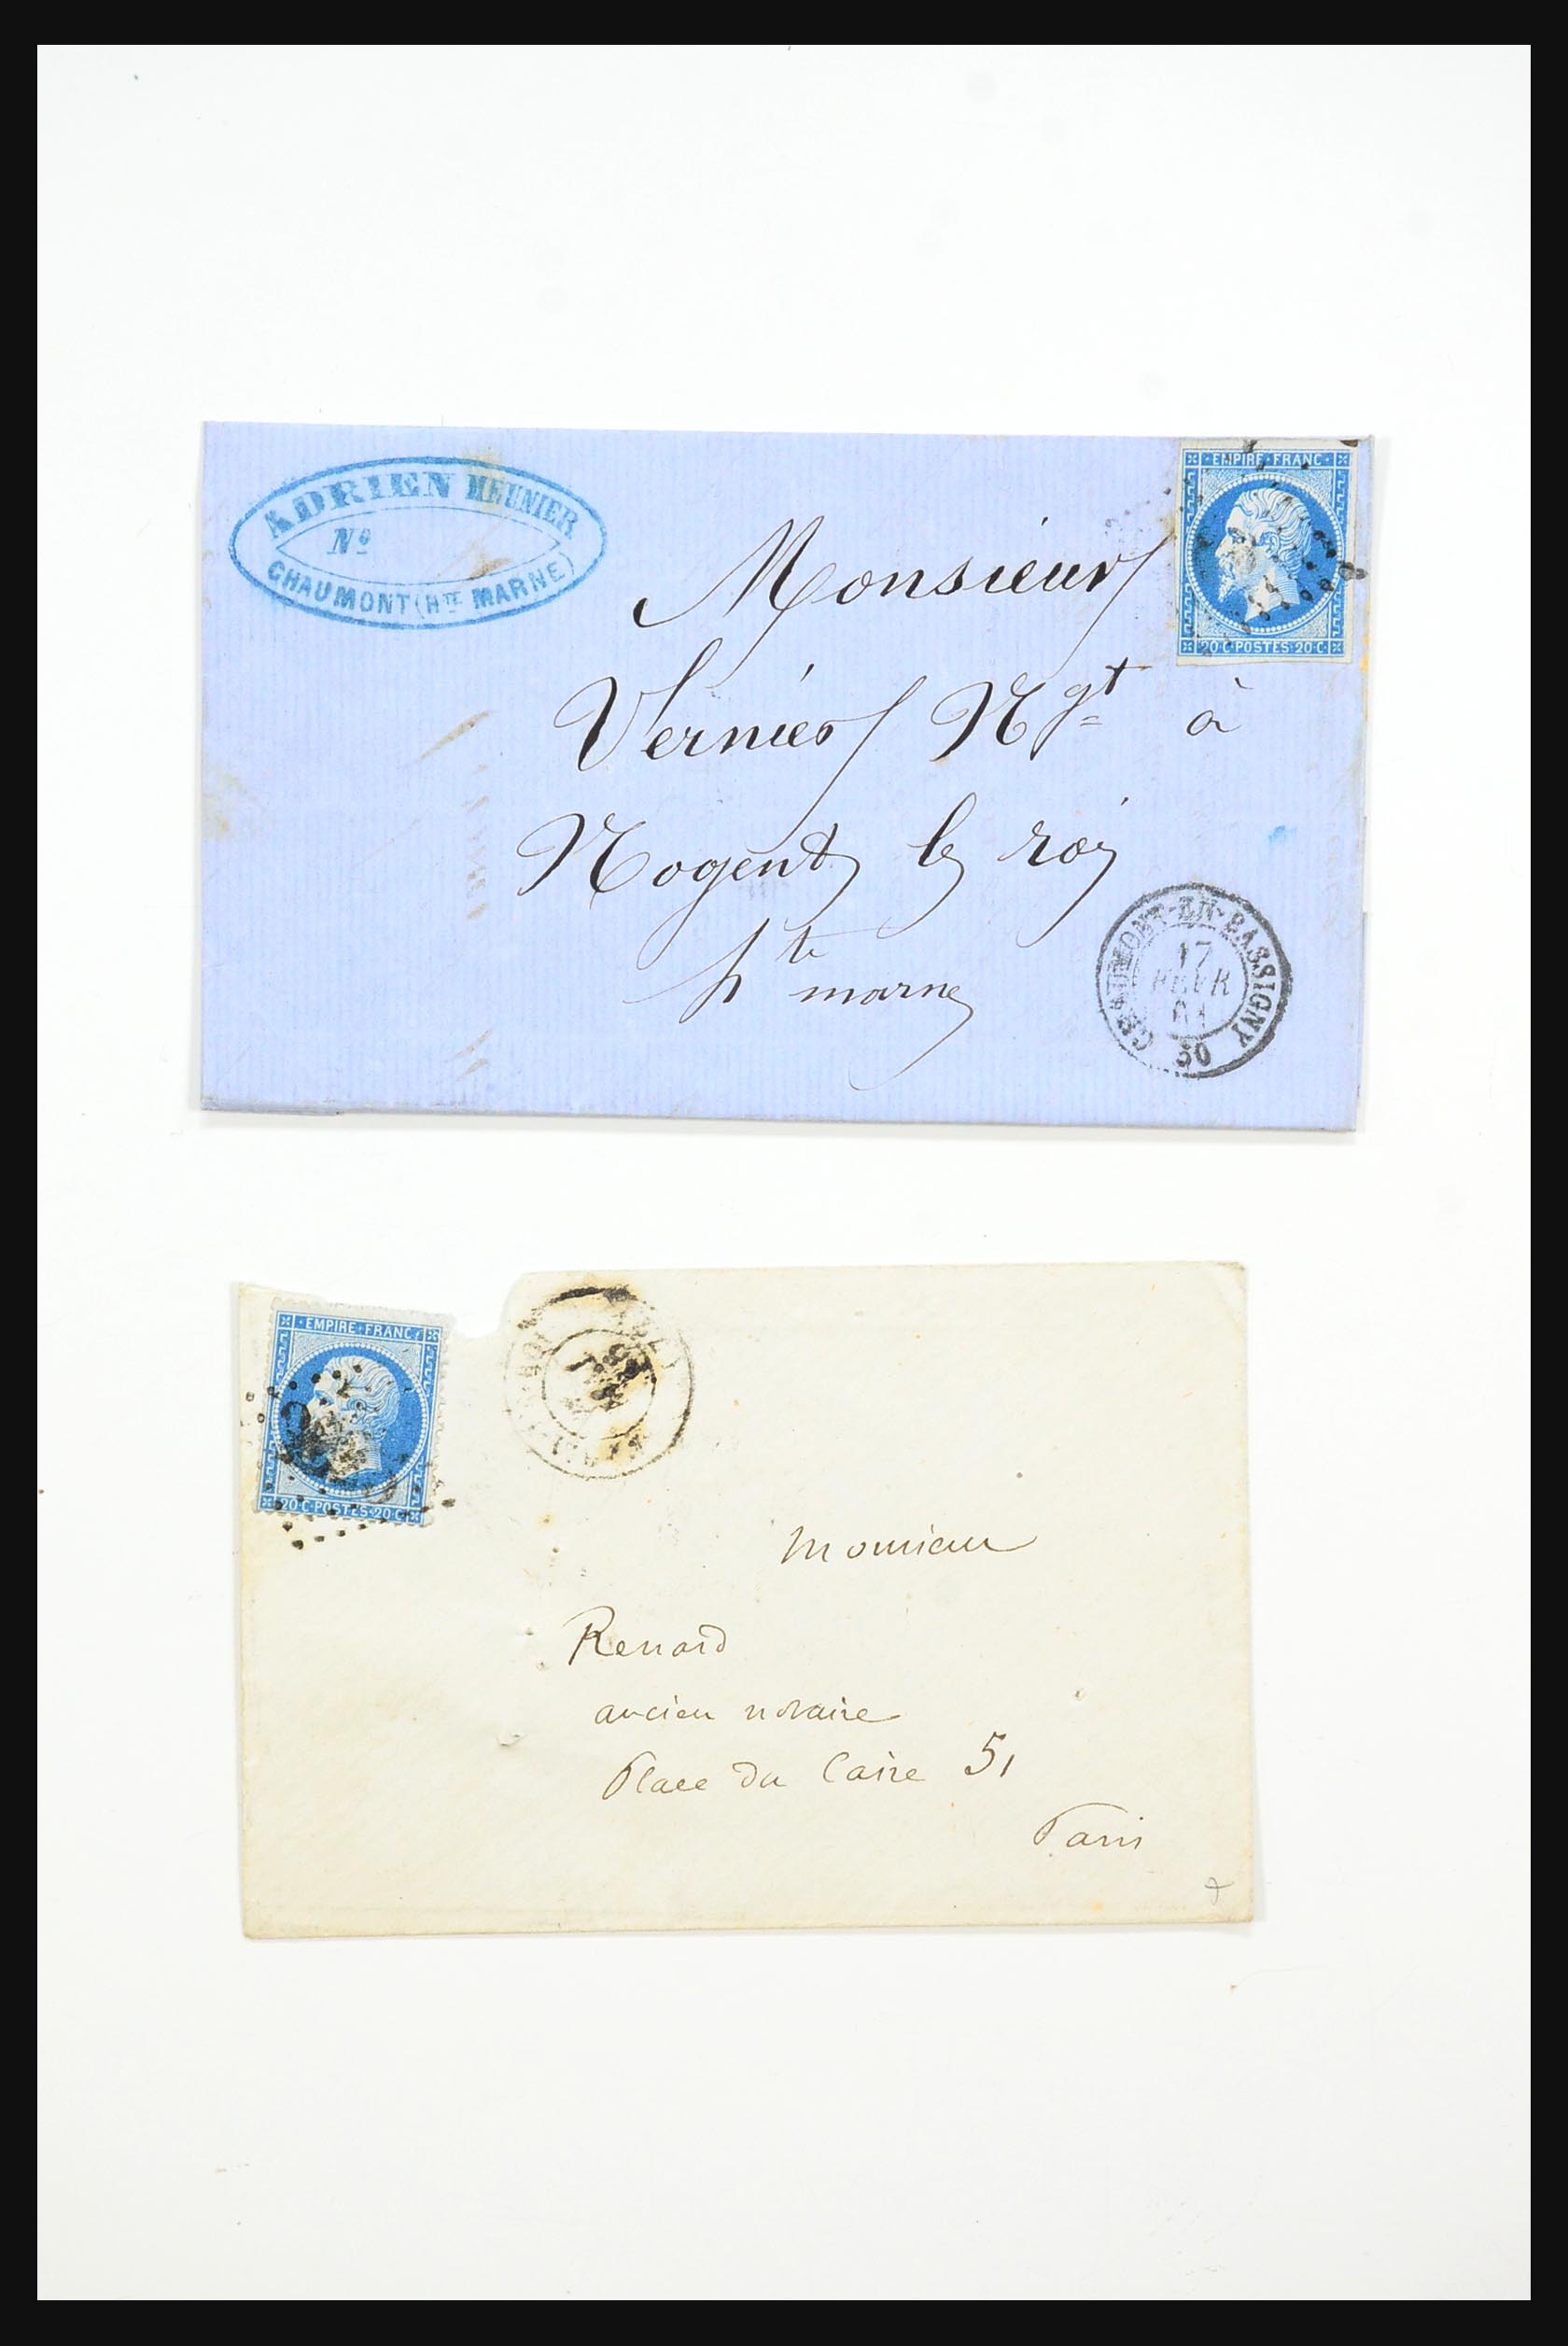 ADRIEN MEUNIER
Nº
CHAUMONT (HTE MARNE)
EMPIRE FRANC
20 C POSTES 20 C
Monsieur
Vernier Ngt à
Nogent le roi
hte marne
CHAUMONT-EN-BASSIGNY
17
FEVR
61
50
EMPIRE FRANC
20 C POSTES 20 C
Monsieur
Renard
ancien notaire
Place du Caire 51
Paris